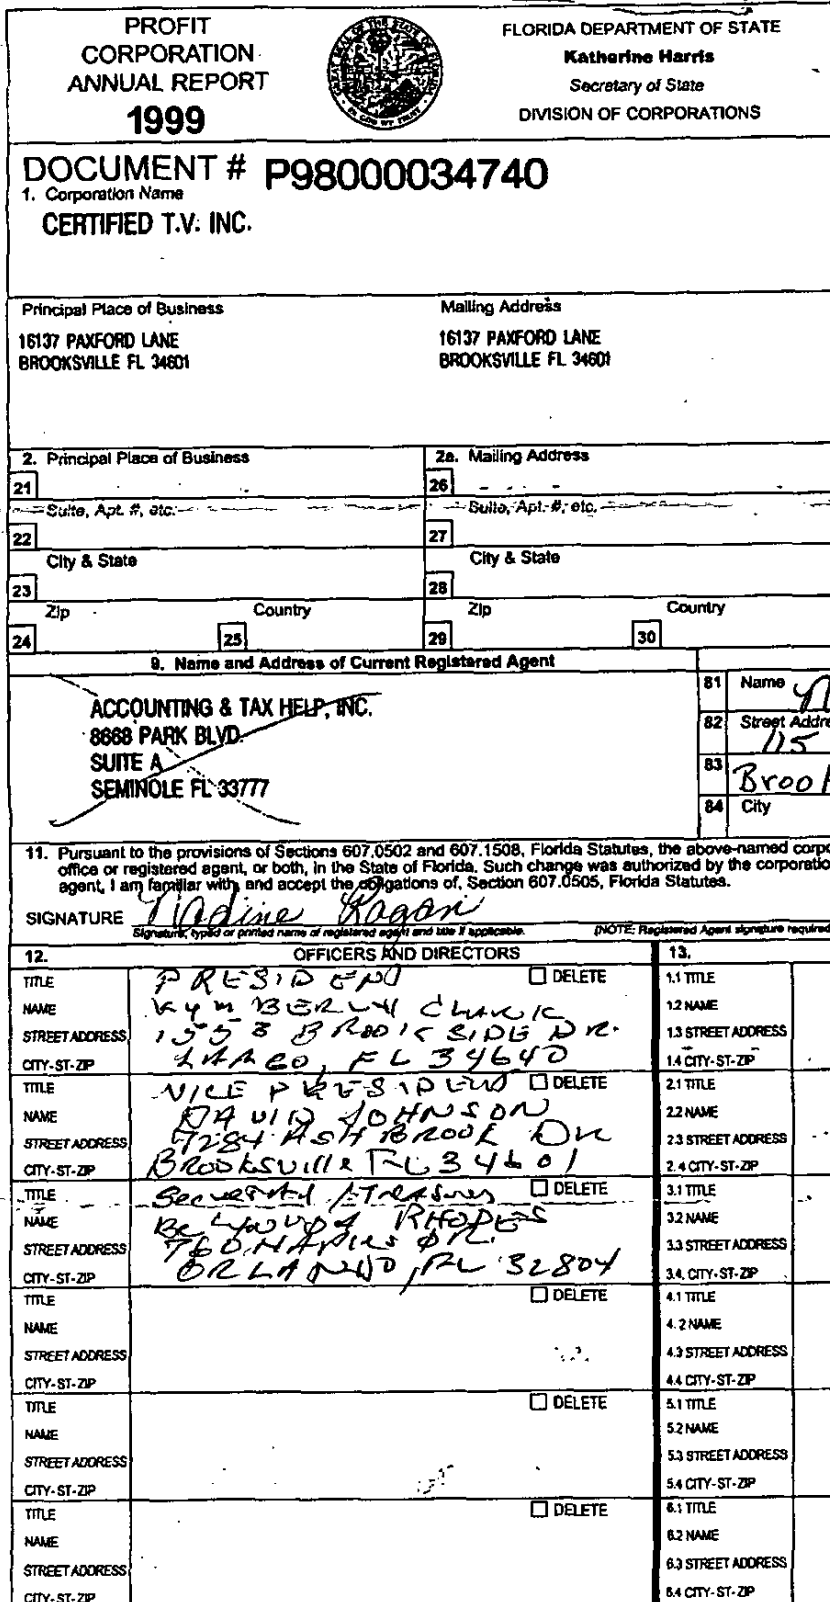 PROFIT
CORPORATION
ANNUAL REPORT
1999
GREAT SEAL OF THE STATE OF FLORIDA
IN GOD WE TRUST
FLORIDA DEPARTMENT OF STATE
Katherine Harris
Secretary of State
DIVISION OF CORPORATIONS
DOCUMENT # P98000034740
1. Corporation Name
CERTIFIED T.V. INC.
Principal Place of Business
Mailing Address
16137 PAXFORD LANE
BROOKSVILLE FL 34601
16137 PAXFORD LANE
BROOKSVILLE FL 34601
2. Principal Place of Business
2a. Mailing Address
21
26
Suite, Apt. #, etc.
Suite, Apt. #, etc.
22
27
City & State
City & State
23
28
Zip
Country
Zip
Country
24
25
29
30
9. Name and Address of Current Registered Agent
ACCOUNTING & TAX HELP, INC.
8668 PARK BLVD.
SUITE A
SEMINOLE FL 33777
81 Name
82 Street Addre
115
83 Broo
84 City
11. Pursuant to the provisions of Sections 607.0502 and 607.1508, Florida Statutes, the above-named corpo
office or registered agent, or both, in the State of Florida. Such change was authorized by the corporatio
agent, I am familiar with, and accept the obligations of, Section 607.0505, Florida Statutes.
SIGNATURE Nadine Kagan
Signature, typed or printed name of registered agent and title if applicable.
(NOTE: Registered Agent signature required
12. OFFICERS AND DIRECTORS
13.
TITLE PRESIDENT DELETE
NAME Kymberly Clark
STREET ADDRESS 1553 BROOKSIDE DR.
CITY-ST-ZIP LARGO, FL 34640
TITLE VICE PRESIDENT DELETE
NAME DAVID JOHNSON
STREET ADDRESS 7284 ASHBROOK DR
CITY-ST-ZIP BROOKSVILLE FL 34601
TITLE DELETE
NAME RHODES
STREET ADDRESS 760 DR.
CITY-ST-ZIP ORLANDO, FL 32804
TITLE DELETE
NAME
STREET ADDRESS
CITY-ST-ZIP
TITLE DELETE
NAME
STREET ADDRESS
CITY-ST-ZIP
TITLE DELETE
NAME
STREET ADDRESS
CITY-ST-ZIP
1.1 TITLE
1.2 NAME
1.3 STREET ADDRESS
1.4 CITY-ST-ZIP
2.1 TITLE
2.2 NAME
2.3 STREET ADDRESS
2.4 CITY-ST-ZIP
3.1 TITLE
3.2 NAME
3.3 STREET ADDRESS
3.4. CITY-ST-ZIP
4.1 TITLE
4.2 NAME
4.3 STREET ADDRESS
4.4 CITY-ST-ZIP
5.1 TITLE
5.2 NAME
5.3 STREET ADDRESS
5.4 CITY-ST-ZIP
6.1 TITLE
6.2 NAME
6.3 STREET ADDRESS
6.4 CITY-ST-ZIP